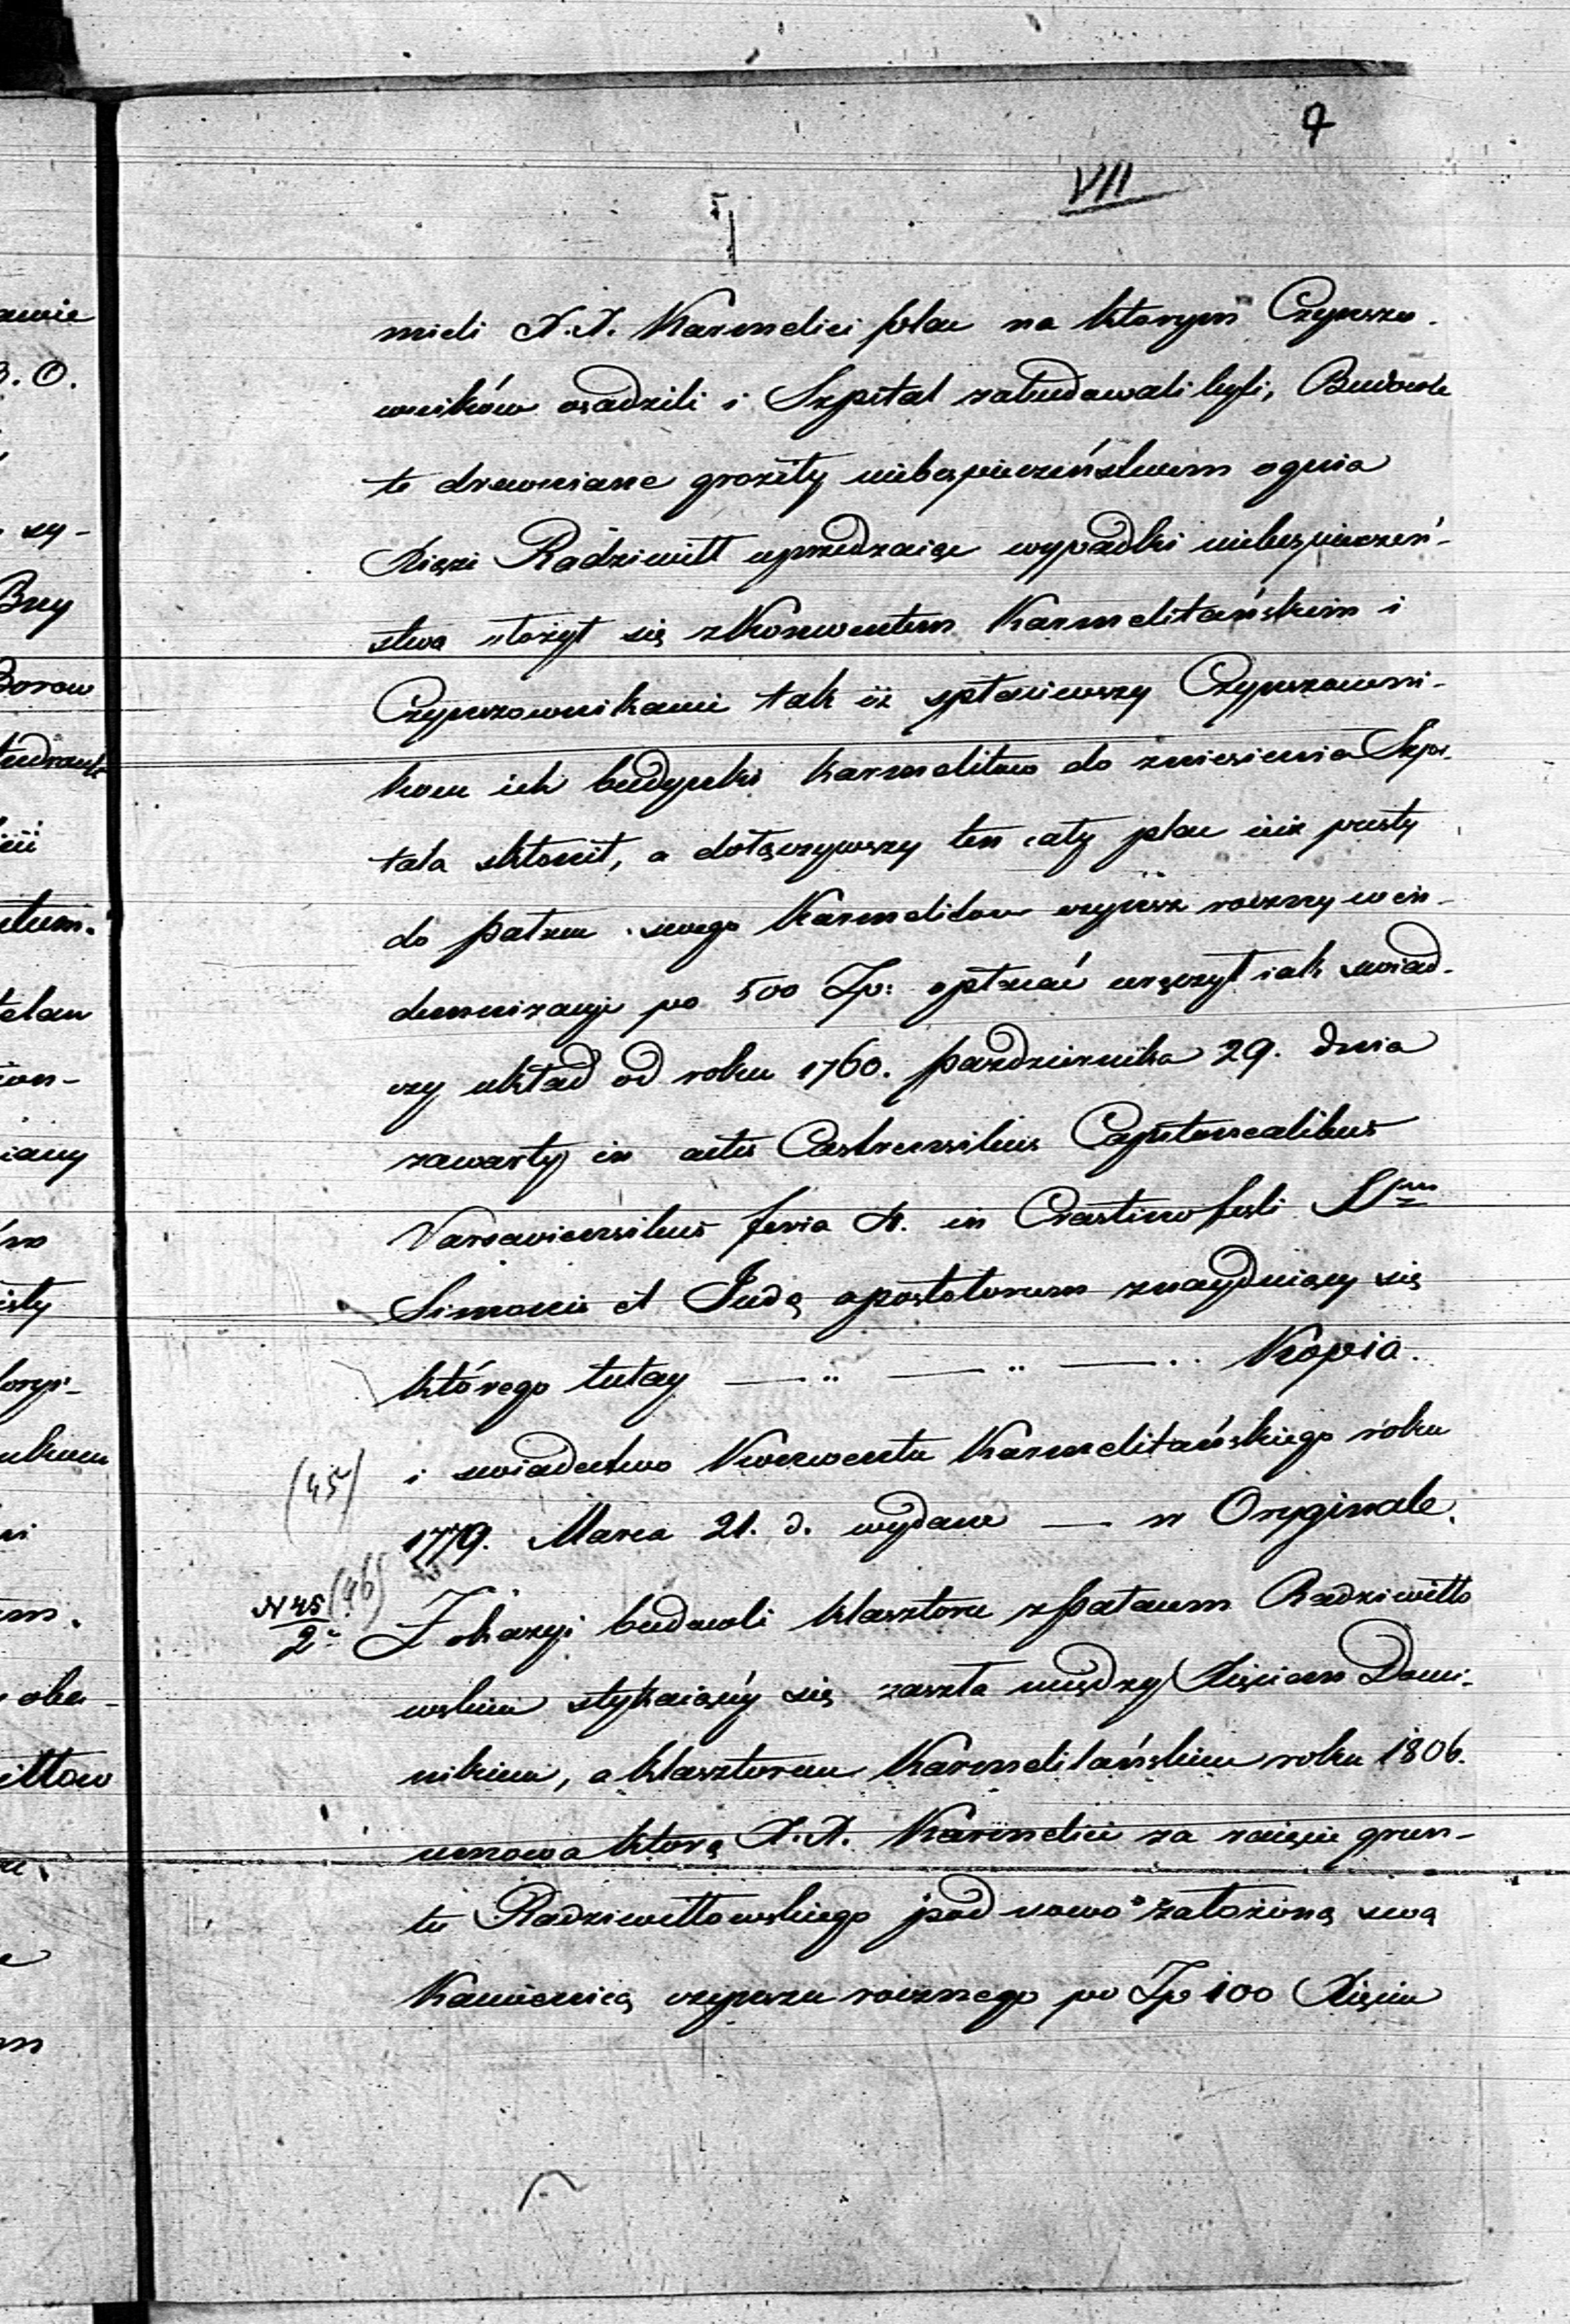 7
VII
mieli X.X. Karmelici plac na ktorym Czynszo-
wników osadzili i Szpital zabudowali byli, Budowle
te drewniane groziły niebespieczeństwem ognia
Xiąże Radziwiłł uprzedzaiąc wypadki niebespieczeń-
stwa ułożył się z Konwentem Karmelitańskim i
Czynszownikami tak iż spłaciwszy Czynszowni-
kom ich budynki Karmelitow do zniesienia Szpi-
tala skłonił, a dołączywszy ten cały plac iuż pusty
do pałacu swego Karmelitow czynsz roczny win-
demnizacyi po 500 Zp: opłacać uręczył iak swiad-
czy układ od roku 1760. pazdziernika 29. dnia
zawarty in actis Castrensibus Capitanealibus
Varsaviensibus feria 4. in Crastino festi SS
Simonis et Judę apostolorum znayduiący się
którego tutay — .. — .. — .. Kopia.
(45) i swiadectwo Konwentu Karmelitańskiego roku
1779. Marca 21. d. wydane — w Oryginale.
N 45 (46)
2 Z okazyi budowli klasztoru z pałacem Radziwiłło
wskim stykaiącey się zaszła między Xięciem Domi-
nikiem, a klasztorem Karmelitańskim roku 1806.
umowa ktorą X.X. Karmelici za zaięcie grun-
tu Radziwiłłowskiego pod nowo założoną swą
Kamienicą czynszu rocznego po Zp 100 Xięciu